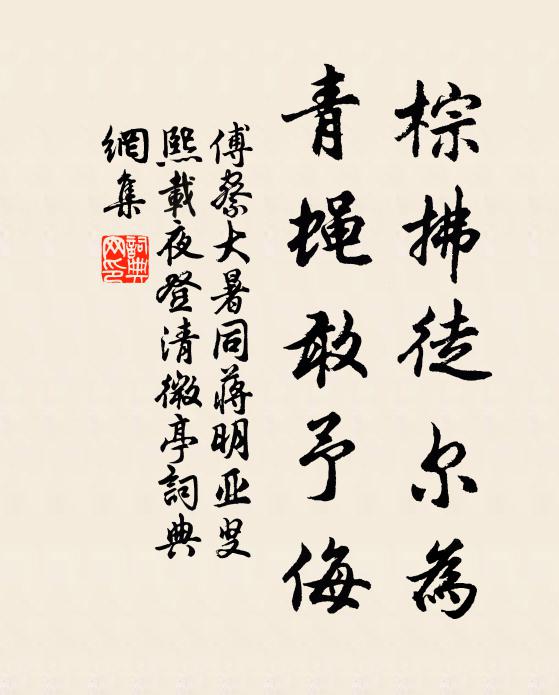 棕拂徒尔為
青蝇敢予侮
傅察大暑同蒋明亚叟
熙載夜登清微亭詞典
網集
詞典網印